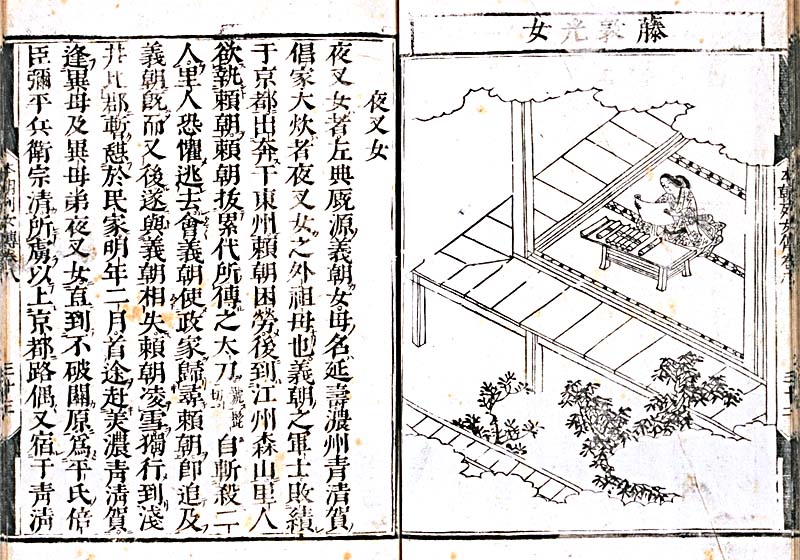 藤敦光女
夜叉女
夜叉女者左典厩源義朝女母名延壽濃州青清賀
倡家大炊者夜叉女之外祖母也義朝之軍士敗績
于京都出奔于東州賴朝困勞後到江州森山里人
欲執賴朝賴朝拔累代所傳之太刀號髭切自斬殺二
人里人恐懼逃去會義朝使政家歸尋賴朝卽追及
義朝旣而又後遂與義朝相失賴朝凌雪獨行到淺
井北郡暫憇於民家明年二月首途赴美濃青清賀
逢異母及異母弟夜叉女直到不破關原爲平氏倍
臣彌平兵衛宗清所虜以上京都路偶又宿于青清
本朝列女傳卷八